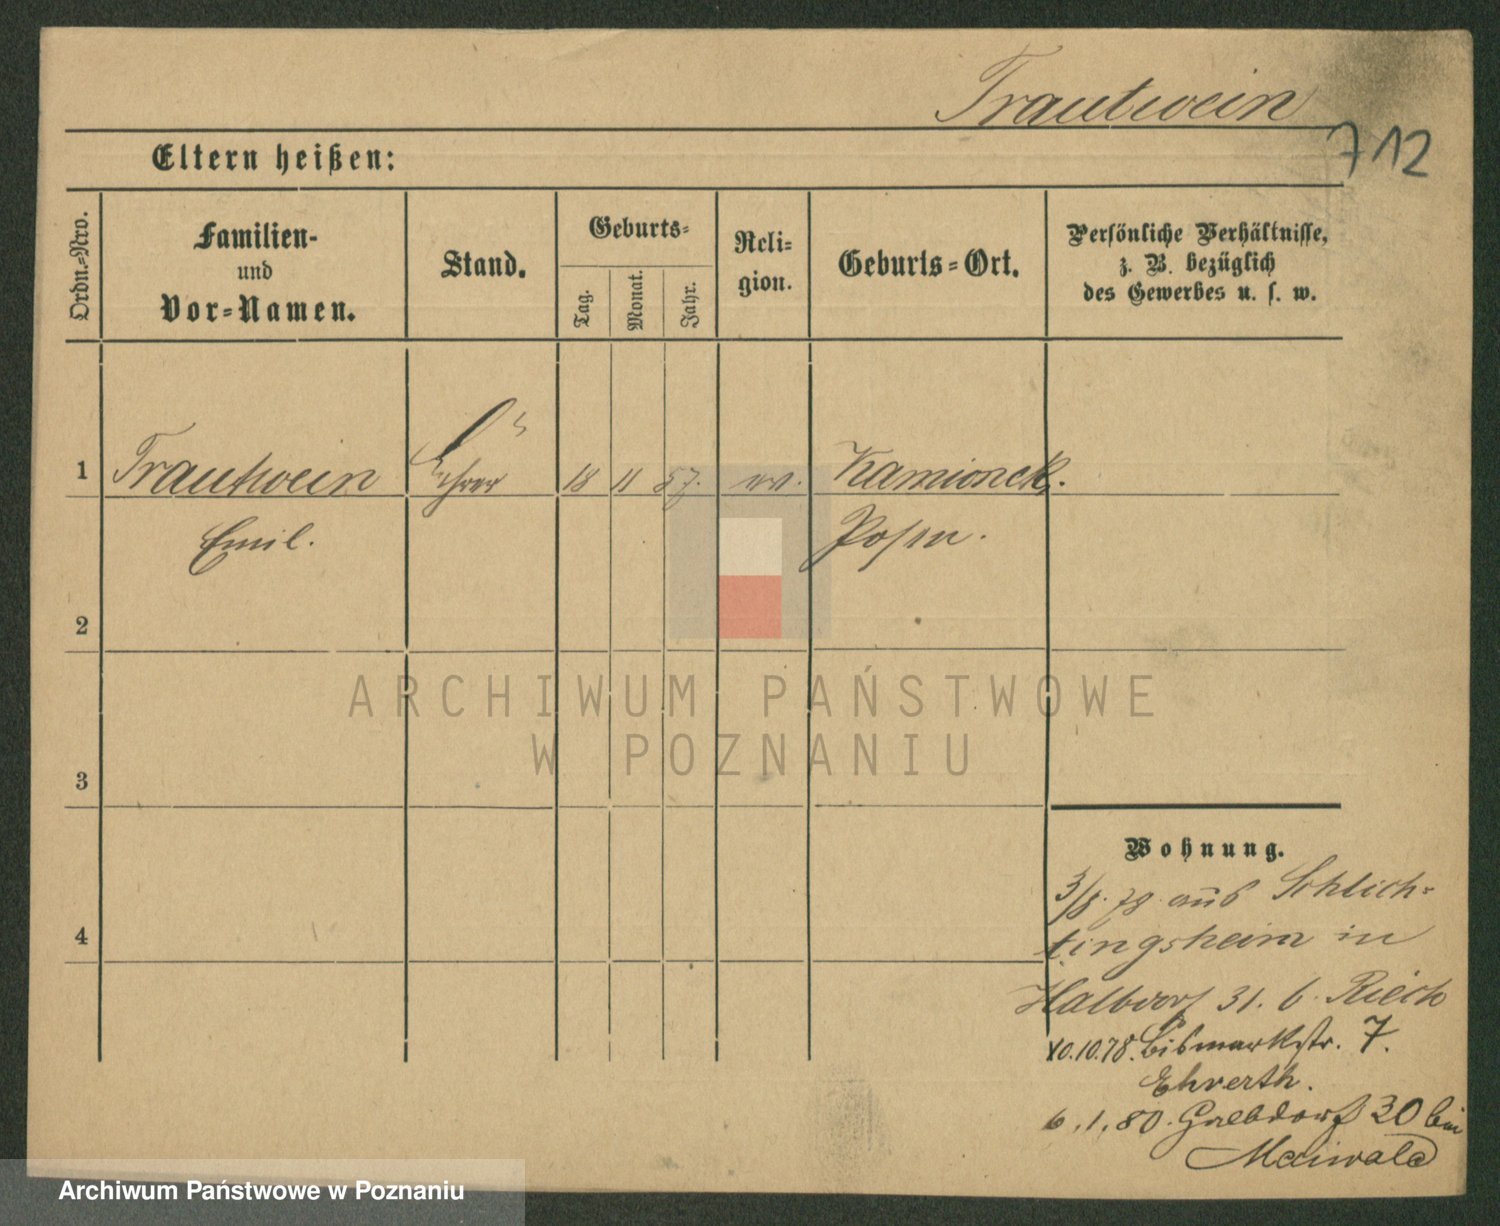 Trautwein
712
Eltern heißen:
Ordn.-Nro.
Familien-
und
Vor-Namen.
Stand.
Geburts-
Tag.
Monat.
Jahr.
Reli-
gion.
Geburts-Ort.
Persönliche Verhältnisse,
z. B. bezüglich
des Gewerbes u. s. w.
1 Trautwein Lehrer 18 11 57. ev. Kamionek.
Emil. Posen.
2
3
4
ARCHIWUM PAŃSTWOWE
W POZNANIU
Wohnung.
3/8. 78 aus Schlich-
tingsheim in
Halbdorf 31. b. Rieck
10.10.78. Bismarkstr. 7.
Ehrerth.
6.1.80. Halbdorf 30 bei
Maiwald
Archiwum Państwowe w Poznaniu